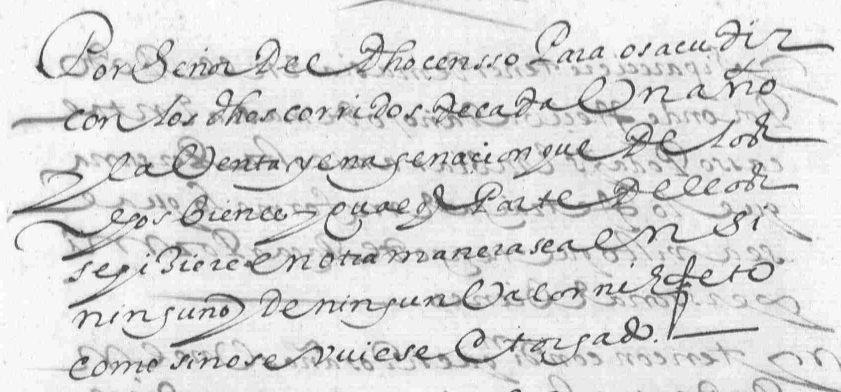 Por Señor Del dho censso Para os acudir
con los dhos corridos de cada Un año
y la Venta y enagenacion que De los
dhos bienes y qualqr Parte De llos
se hiziere en otra manera sea en Si
ninguno y de ningun Valor ni Efeto
como si no se vuiese Otorgado.